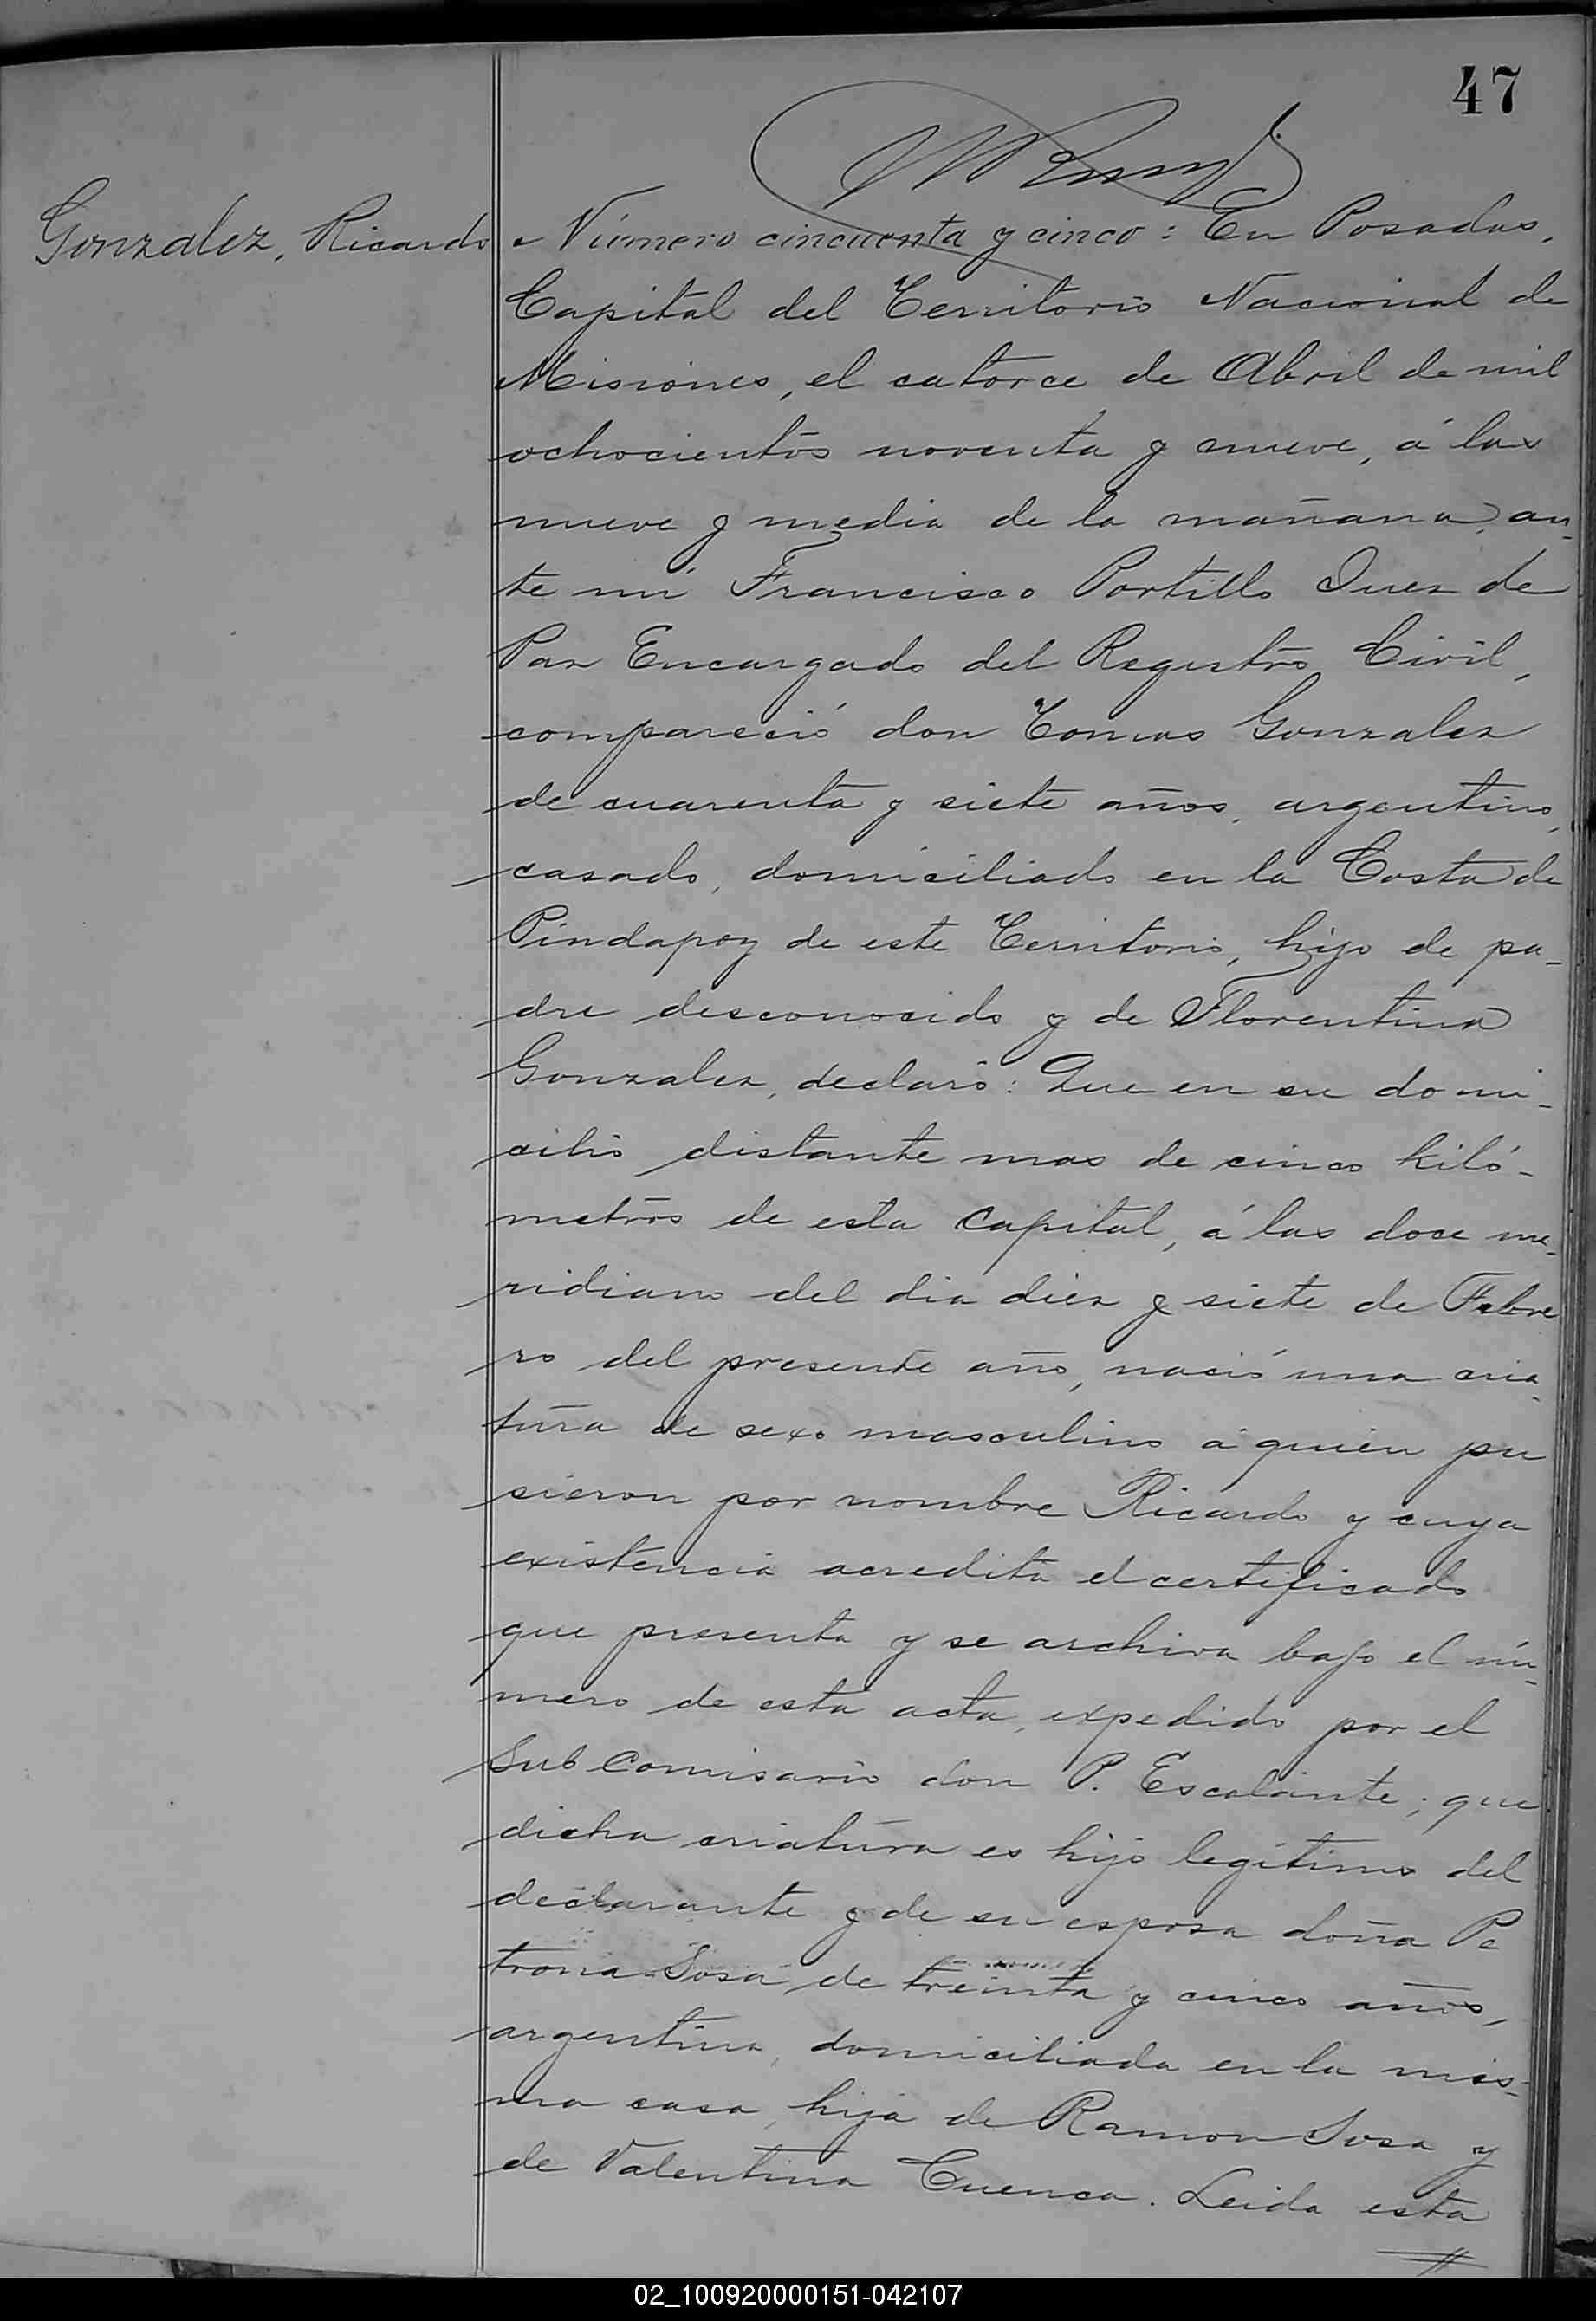 47
Gonzalez, Ricardo
Número cincuenta y cinco: En Posadas,
Capital del Territorio Nacional de
Misiones, el catorce de Abril de mil
ochocientos noventa y nueve, á las
nueve y media de la mañana, an-
te mi Francisco Portillo Juez de
Paz Encargado del Registro Civil,
compareció don Tomas Gonzalez
de cuarenta y siete años, argentino,
casado, domiciliado en la Costa de
Pindapoy de este Territorio, hijo de pa-
dre desconocido y de Florentina
Gonzalez, declaró: Que en su domi-
cilio distante mas de cinco kiló-
metros de esta Capital, á las doce me-
ridiano del dia diez y siete de Febre
ro del presente año, nació una cria-
tura de sexo masculino á quien pu
sieron por nombre Ricardo y cuya
existencia acredita el certificado
que presenta y se archiva bajo el nú-
mero de esta acta, expedido por el
Sub Comisario don P. Escalante; que
dicha criatura es hijo legítimo del
declarante y de su esposa doña Pe
trona Sosa de treinta y cinco años,
argentina, domiciliada en la mis-
ma casa, hija de Ramon Sosa y
de Valentina Cuenca. Leida esta
02_100920000151-042107